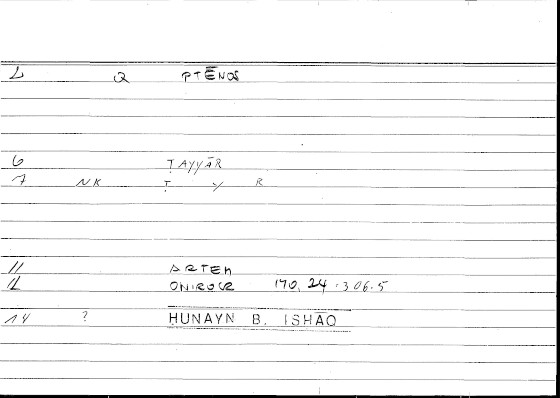 2 Q PTĒNOS
6 ṬAYYĀR
7 NK Ṭ Y R
11 ARTEM
12 ONIROCR 170, 24 - 306.5
14 ? ḤUNAYN B. ISḤĀQ